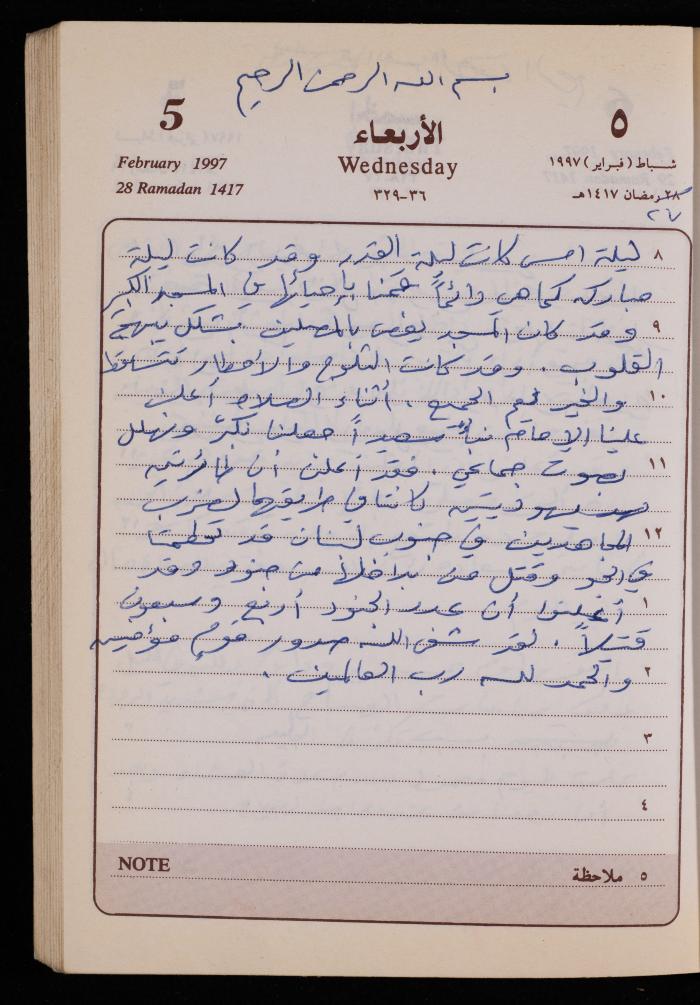 بسم الله الرحمن الرحيم
5
الأربعاء
٥
February 1997
Wednesday
شباط (فبراير) ١٩٩٧
28 Ramadan 1417
٣٦-٣٢٩
٢٨ رمضان ١٤١٧هـ
٢٧
٨ ليلة امس كانت ليلة القدر وقد كانت ليلة
مباركه كما هي دائماً قمنا بإحيائها في المسجد الكبير
٩ وقد كان المسجد يغص بالمصلين بشكل يبهج
القلوب . وقد كانت الثلوج والأمطار تتساقط
١٠ والخير يعم الجميع . أثناء الصلاه أعلن
علينا الإمام نبأً سعيداً جعلنا نكبّر ونهلل
١١ بصوت جماعي . فقد أعلن أن طائرتين
يهوديتين كانتا في طريقهما لضرب
١٢ المجاهدين في جنوب لبنان قد تحطمتا
في الجو وقتل من بداخلها من جنود وقد
١ أعلنوا أن عدد الجنود أربع وسبعون
قتيلاً . لقد شفى الله صدور قومٍ مؤمنين
٢ والحمد لله رب العالمين .
٣
٤
NOTE
٥ ملاحظة